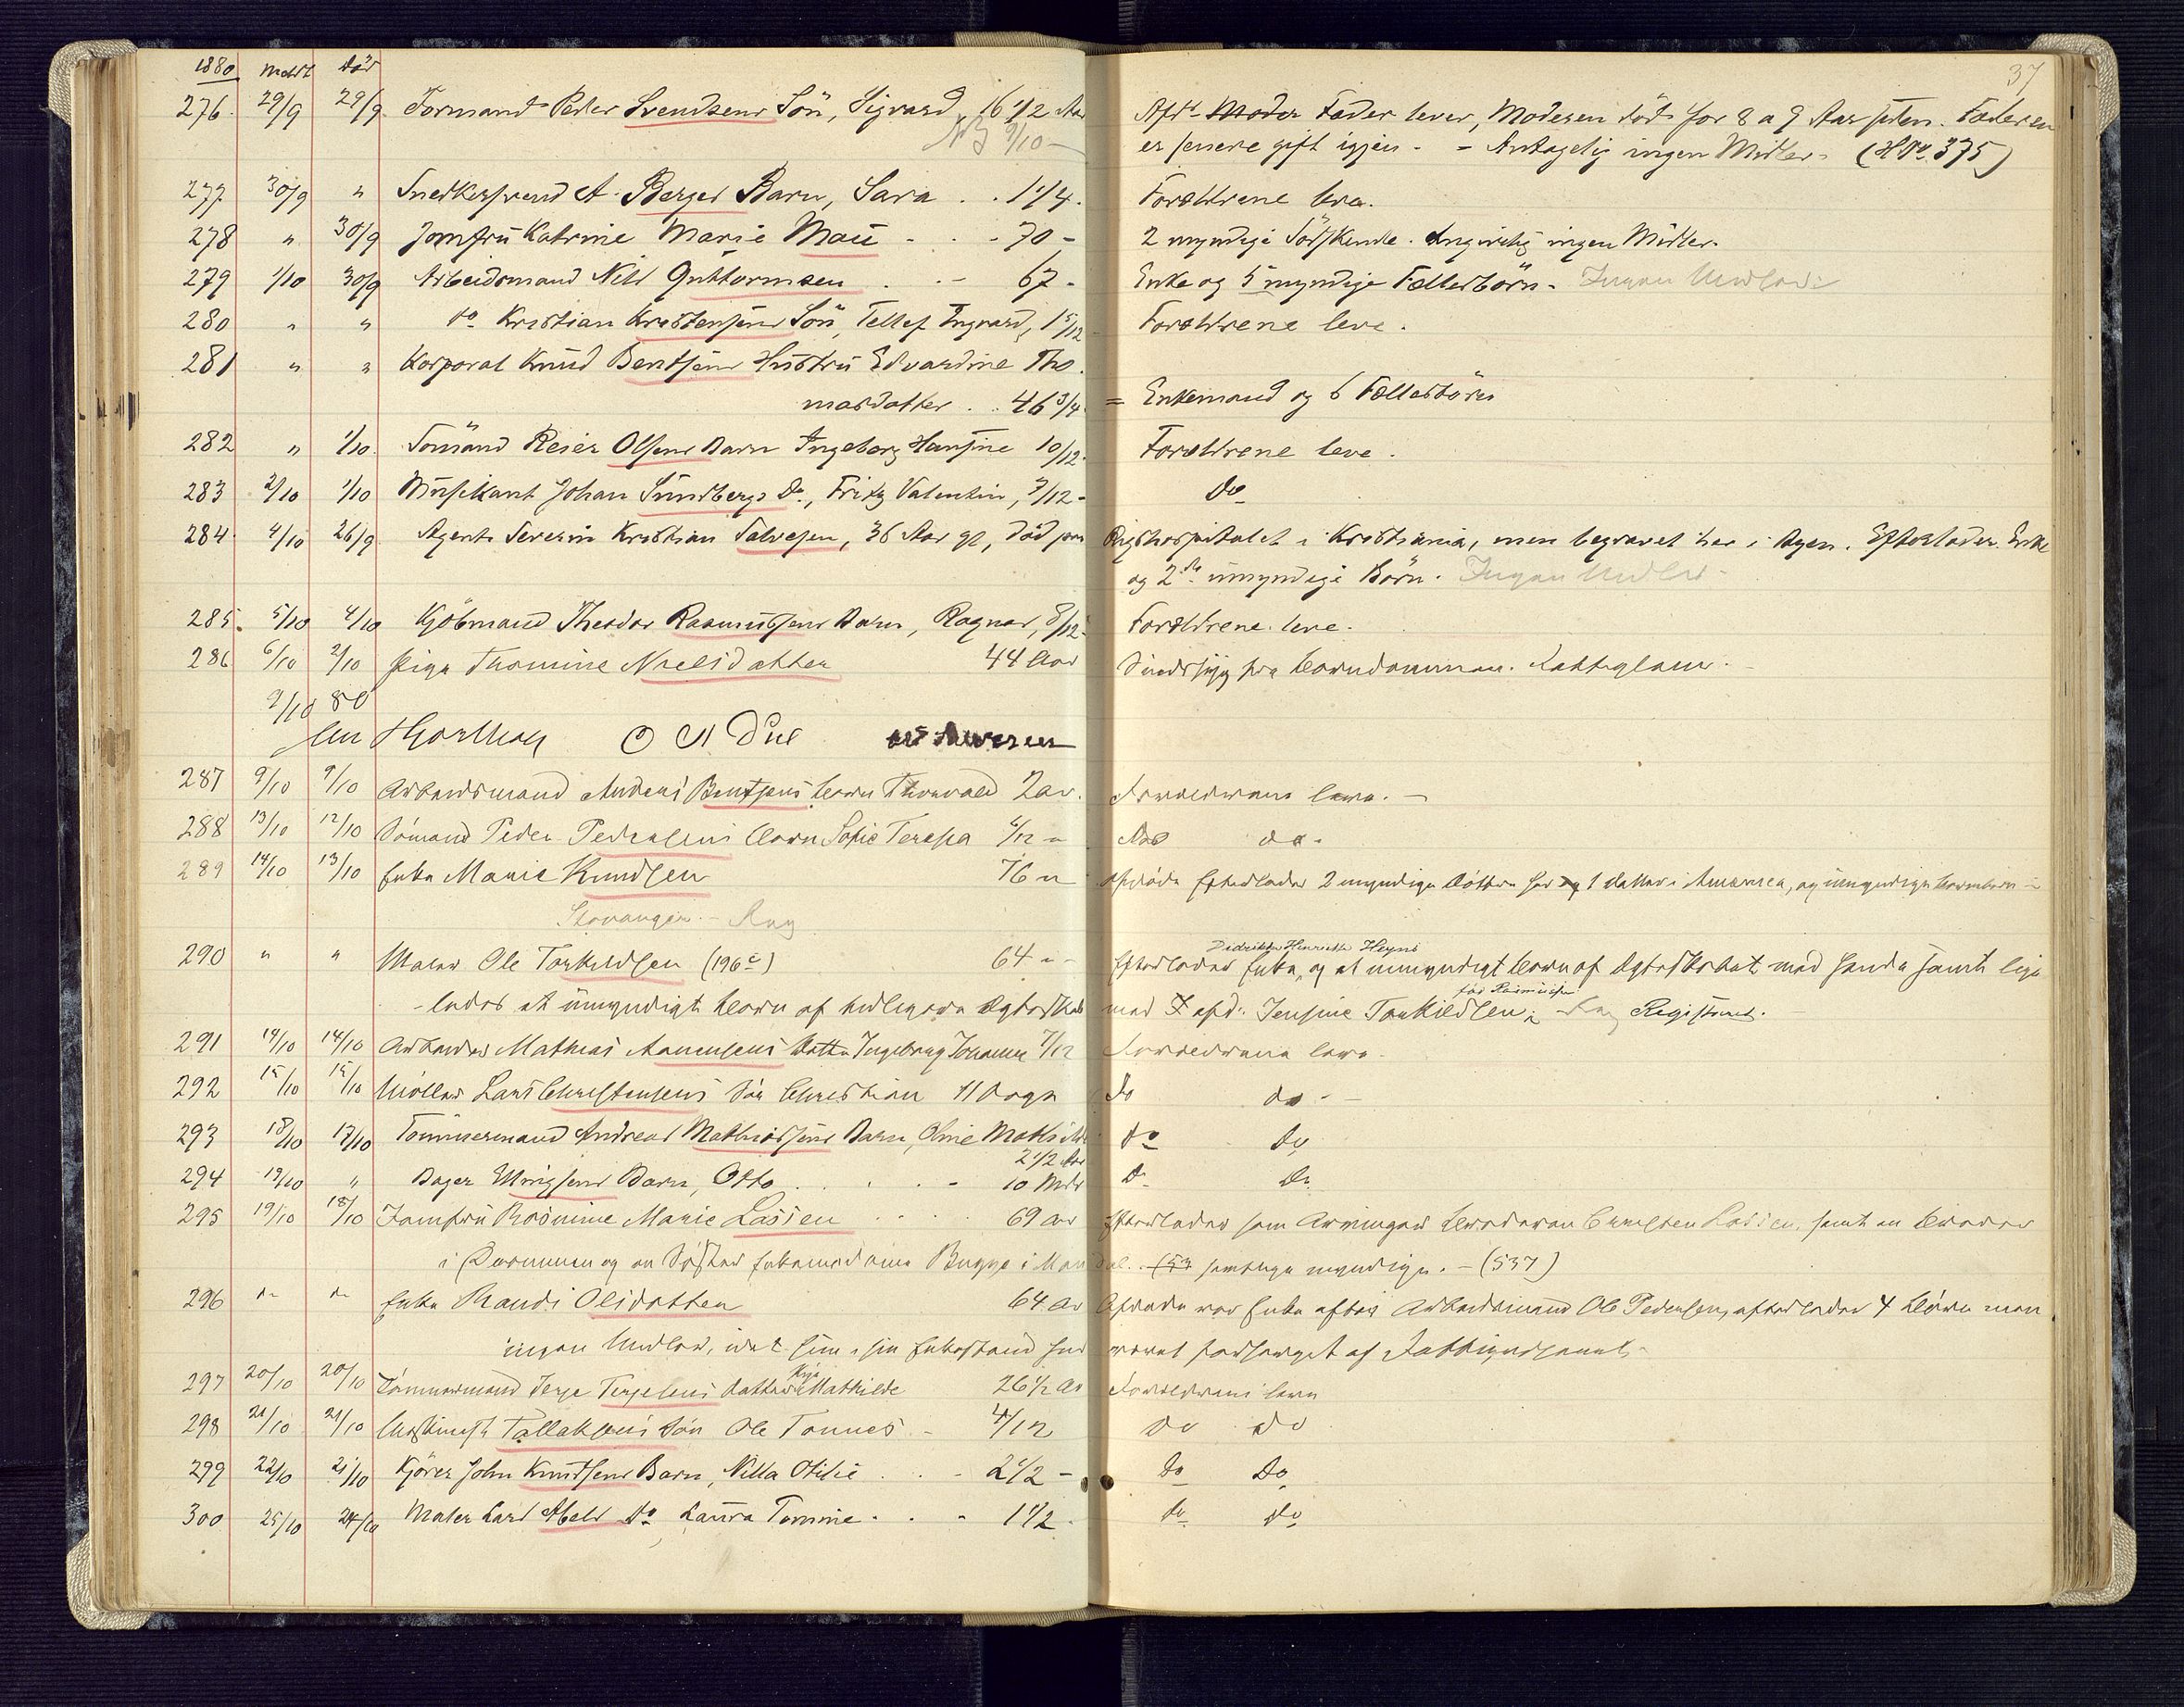 37
1880 Meldt Död
276. 29/9 29/9. Formand Peder Svendsens Sön, Sigvard, 16 1/2 Aar Afd. Moder Fader lever, Moderen död for 8 a 9 Aar siden. Faderen
9/10 – er senere gift igjen. – Antagelig ingen Midler. (H No. 375)
277. 30/9 " Snedkersvend A. Berges Barn, Sara . . 1 1/4. Forældrene leve.
278 " 30/9 Jomfru Katrine Marie Mau - . . - 70 - 2 myndige Södskende. Angivelig ingen Midler.
279 1/10 30/9 Arbeidsmand Nils Guttormsen . . - 67 - Enke og 5 myndige Fællesbörn. Ingen Midler
280 " " do Kristian Kristensens Sön, Tellef Ingvard, 1 5/12 - Forældrene leve.
281 " " Korporal Knud Bentsens Hustru Edvardine Tho-
masdatter . . 46 3/4. = Enkemand og 6 Fællesbörn
282 " 1/10. Sömand Reier Olsens Barn Ingeborg Hansine 10/12. Forældrene leve.
283 2/10 1/10 Musikant Johan Sundbergs Do., Fritz Valentin, 7/12 - do
284. 4/10 26/9 Agent Severin Kristian Salvesen, 36 Aar gl, död paa Rigshospitalet i Kristiania, men begravet her i Byen. Efterlader Enke
og 2 umyndige Börn. Ingen Midler -
285. 5/10 4/10 Kjöbmand Theodor Rasmussens Barn, Ragnar, 8/12. Forældrene leve.
286 6/10 2/10 Pige Thomine Nielsdatter 44 Aar Sindssyg fra Barndommen. Fattiglem. -
9/10 80
O N Due
287 9/10 9/10 Arbeidsmand Anders Bentsens Barn Thorvald 2 Aar. Forældrene leve. -
288 13/10 12/10 Sömand Peder Pedersens Barn Sofie Teresia 6/12 " do do.
289 14/10 13/10 Enke Marie Knudsen 76 " Afdöde Efterlader 2 myndige Döttre her og 1 Datter i Amerika, og umyndige Barnebarn -
Stavanger. -
Didrikke Henriette Heyns
290 " " Maler Ole Torkildsen (196) 64 " - Efterlader Enke, og et umyndigt Barn af Ægteskabet med hende samt lige-
- ledes et umyndigt Barn af tidligere Ægteskab med afd. Jensine Torkildsen, Registreret.
291 14/10 14/10 Arbeider Mathias Aanensens Datter Ingeborg Johanne 7/12 Forældrene leve.
292 15/10 15/10 Möller Lars Christensens Sön Christian 11 Dage do do -
293 18/10 17/10 Tömmermand Andreas Mathiassens Barn, Oline Mathilde do do
2 1/2 Aar
294 19/10 " Bager Ugrigsens Barn, Otto . . . . - 10 Mdr do do
295 19/10 18/10 Jomfru Rosmine Marie Lassen . . . . 69 Aar Efterlader som Arvinger Broderen Christen Lassen, samt en Broder
i Drammen og en Söster Enkemadame Bugge i Mandal. (53 samtlige myndige. - (537)
296 do do Enke Randi Olsdatter 64 Aar Afdöde var Enke efter Arbeidsmand Ole Pedersen, efterlader 4 Börn men
ingen Midler, idet hun i sin Enkestand har været forsörget af Fattigvæsenet.
297 20/10 20/10 Tömmermand Terje Terjesens Datter Mathilde 26 1/2 Aar Forældrene leve
298 21/10 21/10 Maskinist Tallaksens Sön Ole Tönnes - 4/12 do do
299 22/10 21/10 Kjörer John Knudsens Barn, Nilla Otilie . . - 2 1/2 - do do
300 25/10 24/10 Maler Karl Abels do Laura Tomine . . - 1 1/2 - do do